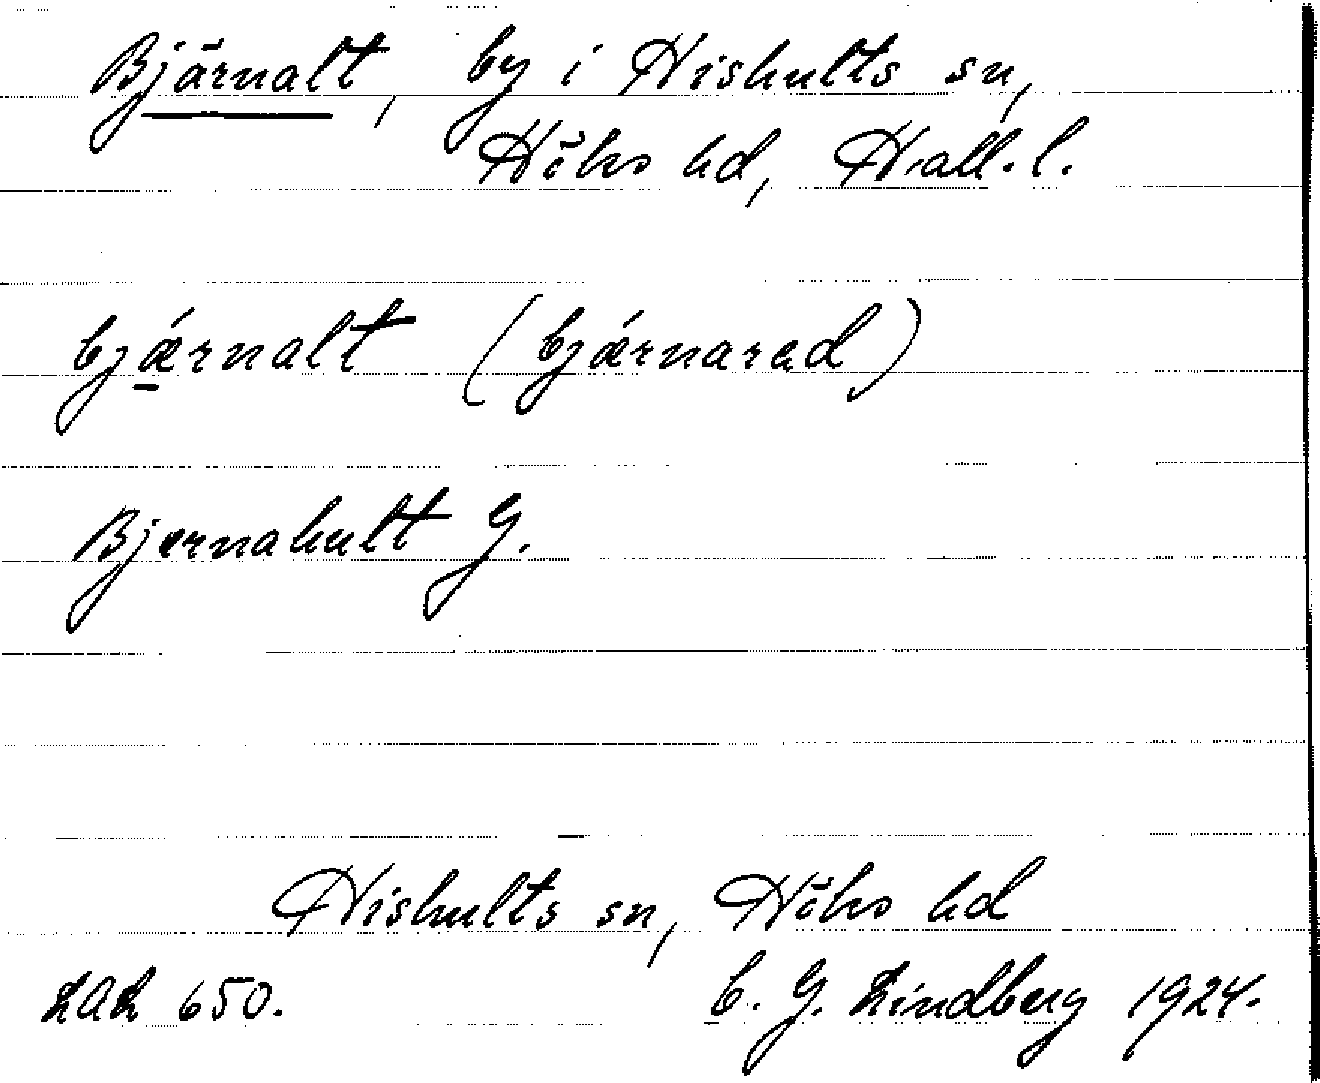 Bjärnalt, by i Hishults sn,
Höks hd, Hall. l.
bjǽrnalt (bjǽrnarəd)
Bjernahult G.
Hishults sn, Höks hd
LAL 650. C. G. Lindberg 1924.